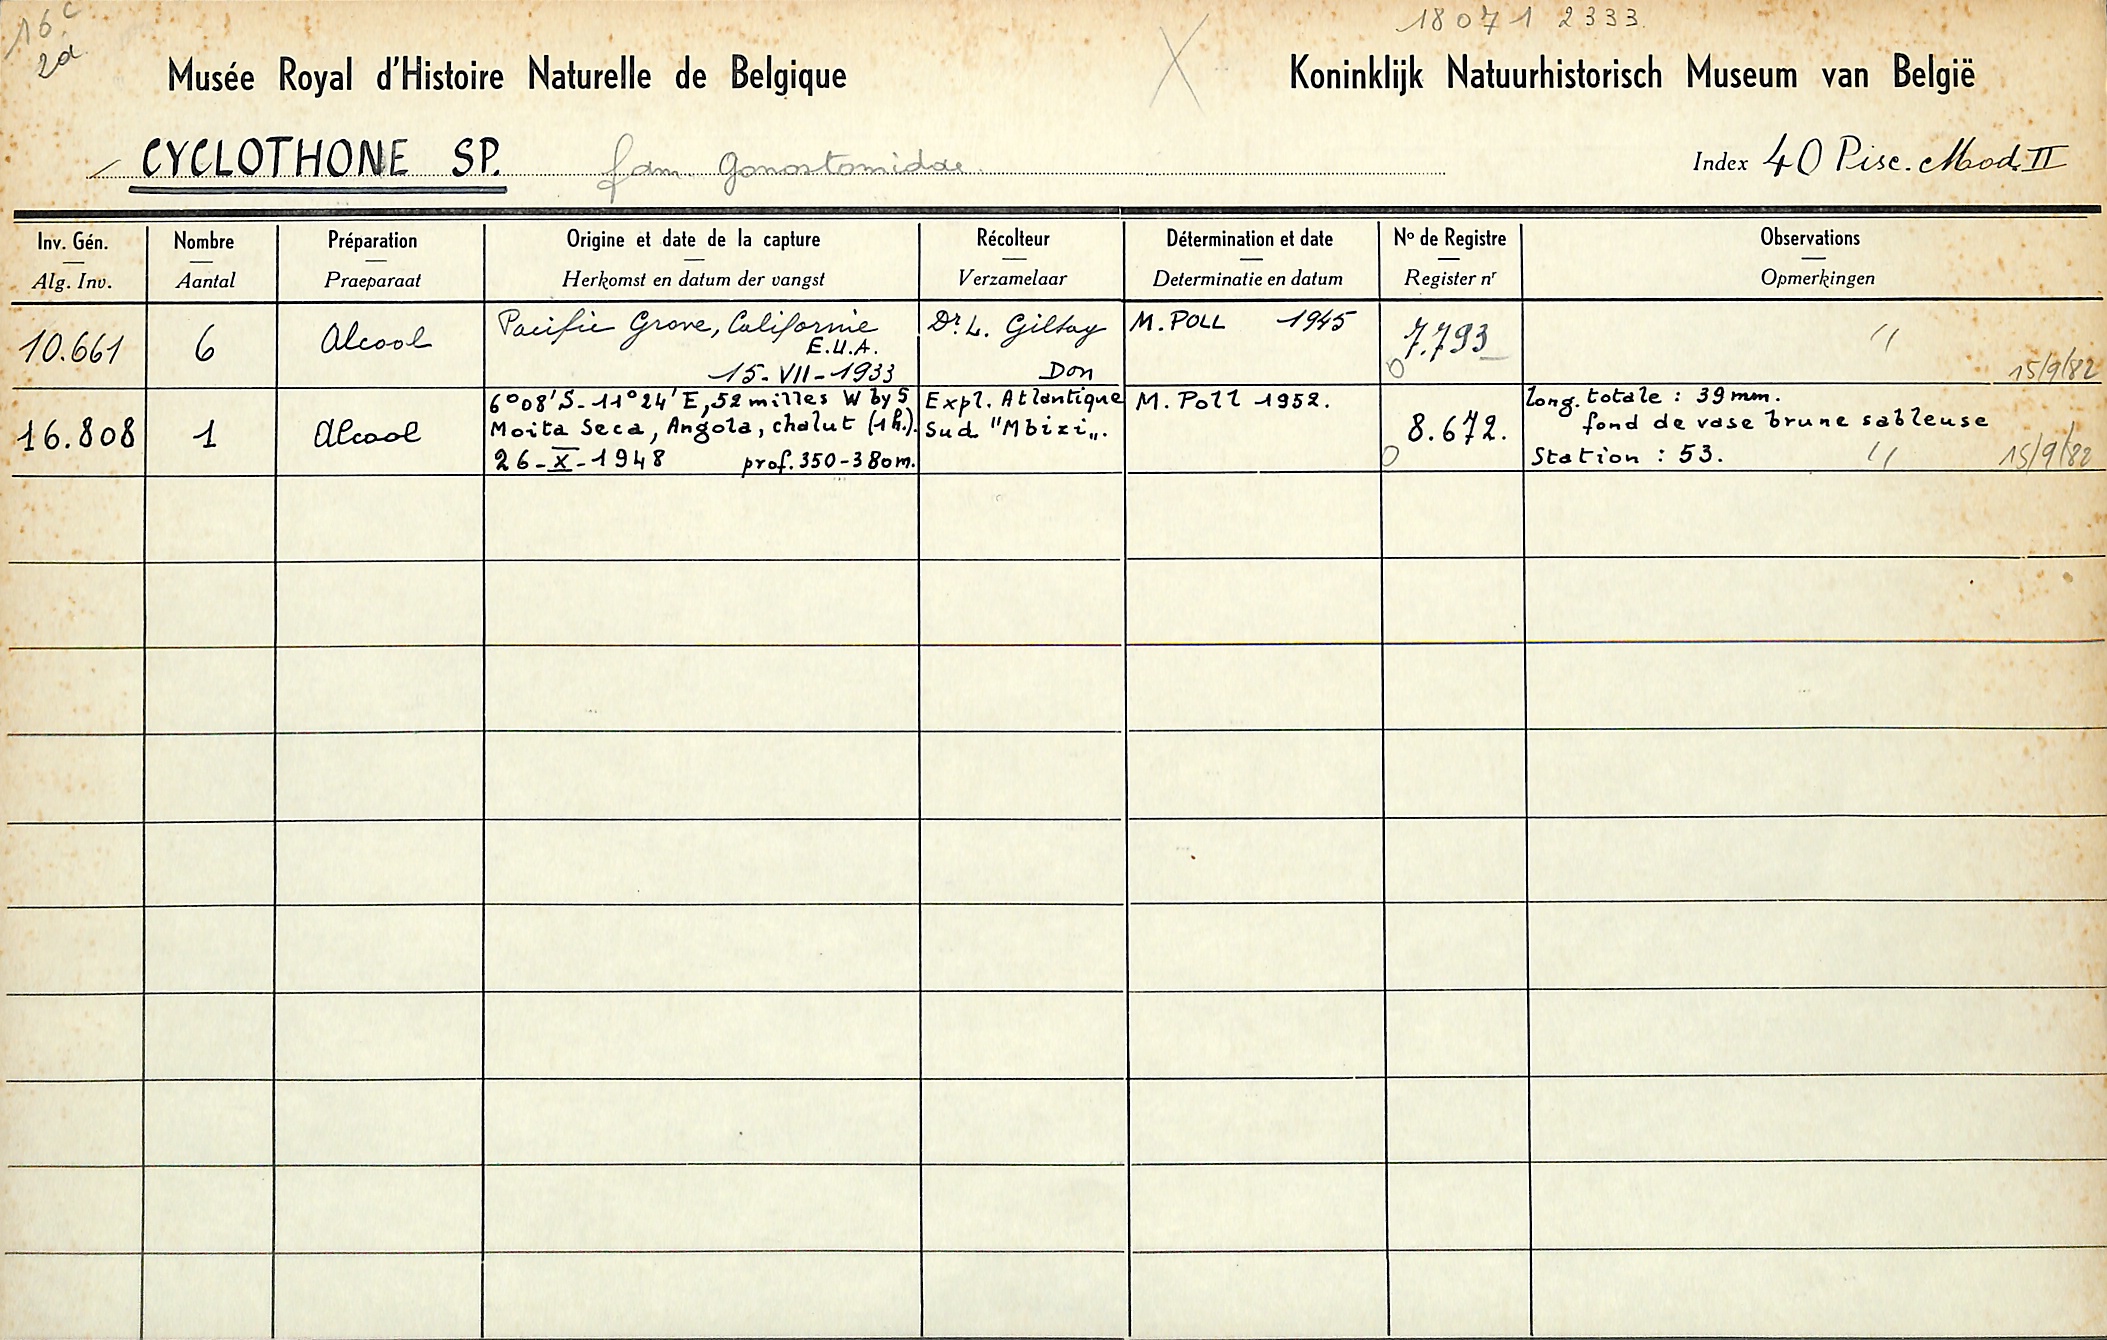 16c
2a
18071 2333
X
Musée Royal d'Histoire Naturelle de Belgique
Koninklijk Natuurhistorisch Museum van België
CYCLOTHONE SP. fam. Gonostomidae
Index 40 Pisc. Mod. II
Inv. Gén. Nombre Préparation Origine et date de la capture Récolteur Détermination et date No de Registre Observations
Alg. Inv. Aantal Praeparaat Herkomst en datum der vangst Verzamelaar Determinatie en datum Register nr Opmerkingen
10.661 6 Alcool Pacific Grove, Californie E.U.A. 15-VII-1933 Dr. L. Giltay Don M. POLL 1945 7.793 " 15/9/82
16.808 1 Alcool 6°08'S-11°24'E, 52 milles W by S Expl. Atlantique M. Poll 1952. 8.672. long. totale : 39 mm.
Moita Seca, Angola, chalut (1h.). Sud "Mbizi". fond de vase brune sableuse
26-X-1948 prof. 350-380m. Station : 53. " 15/9/82